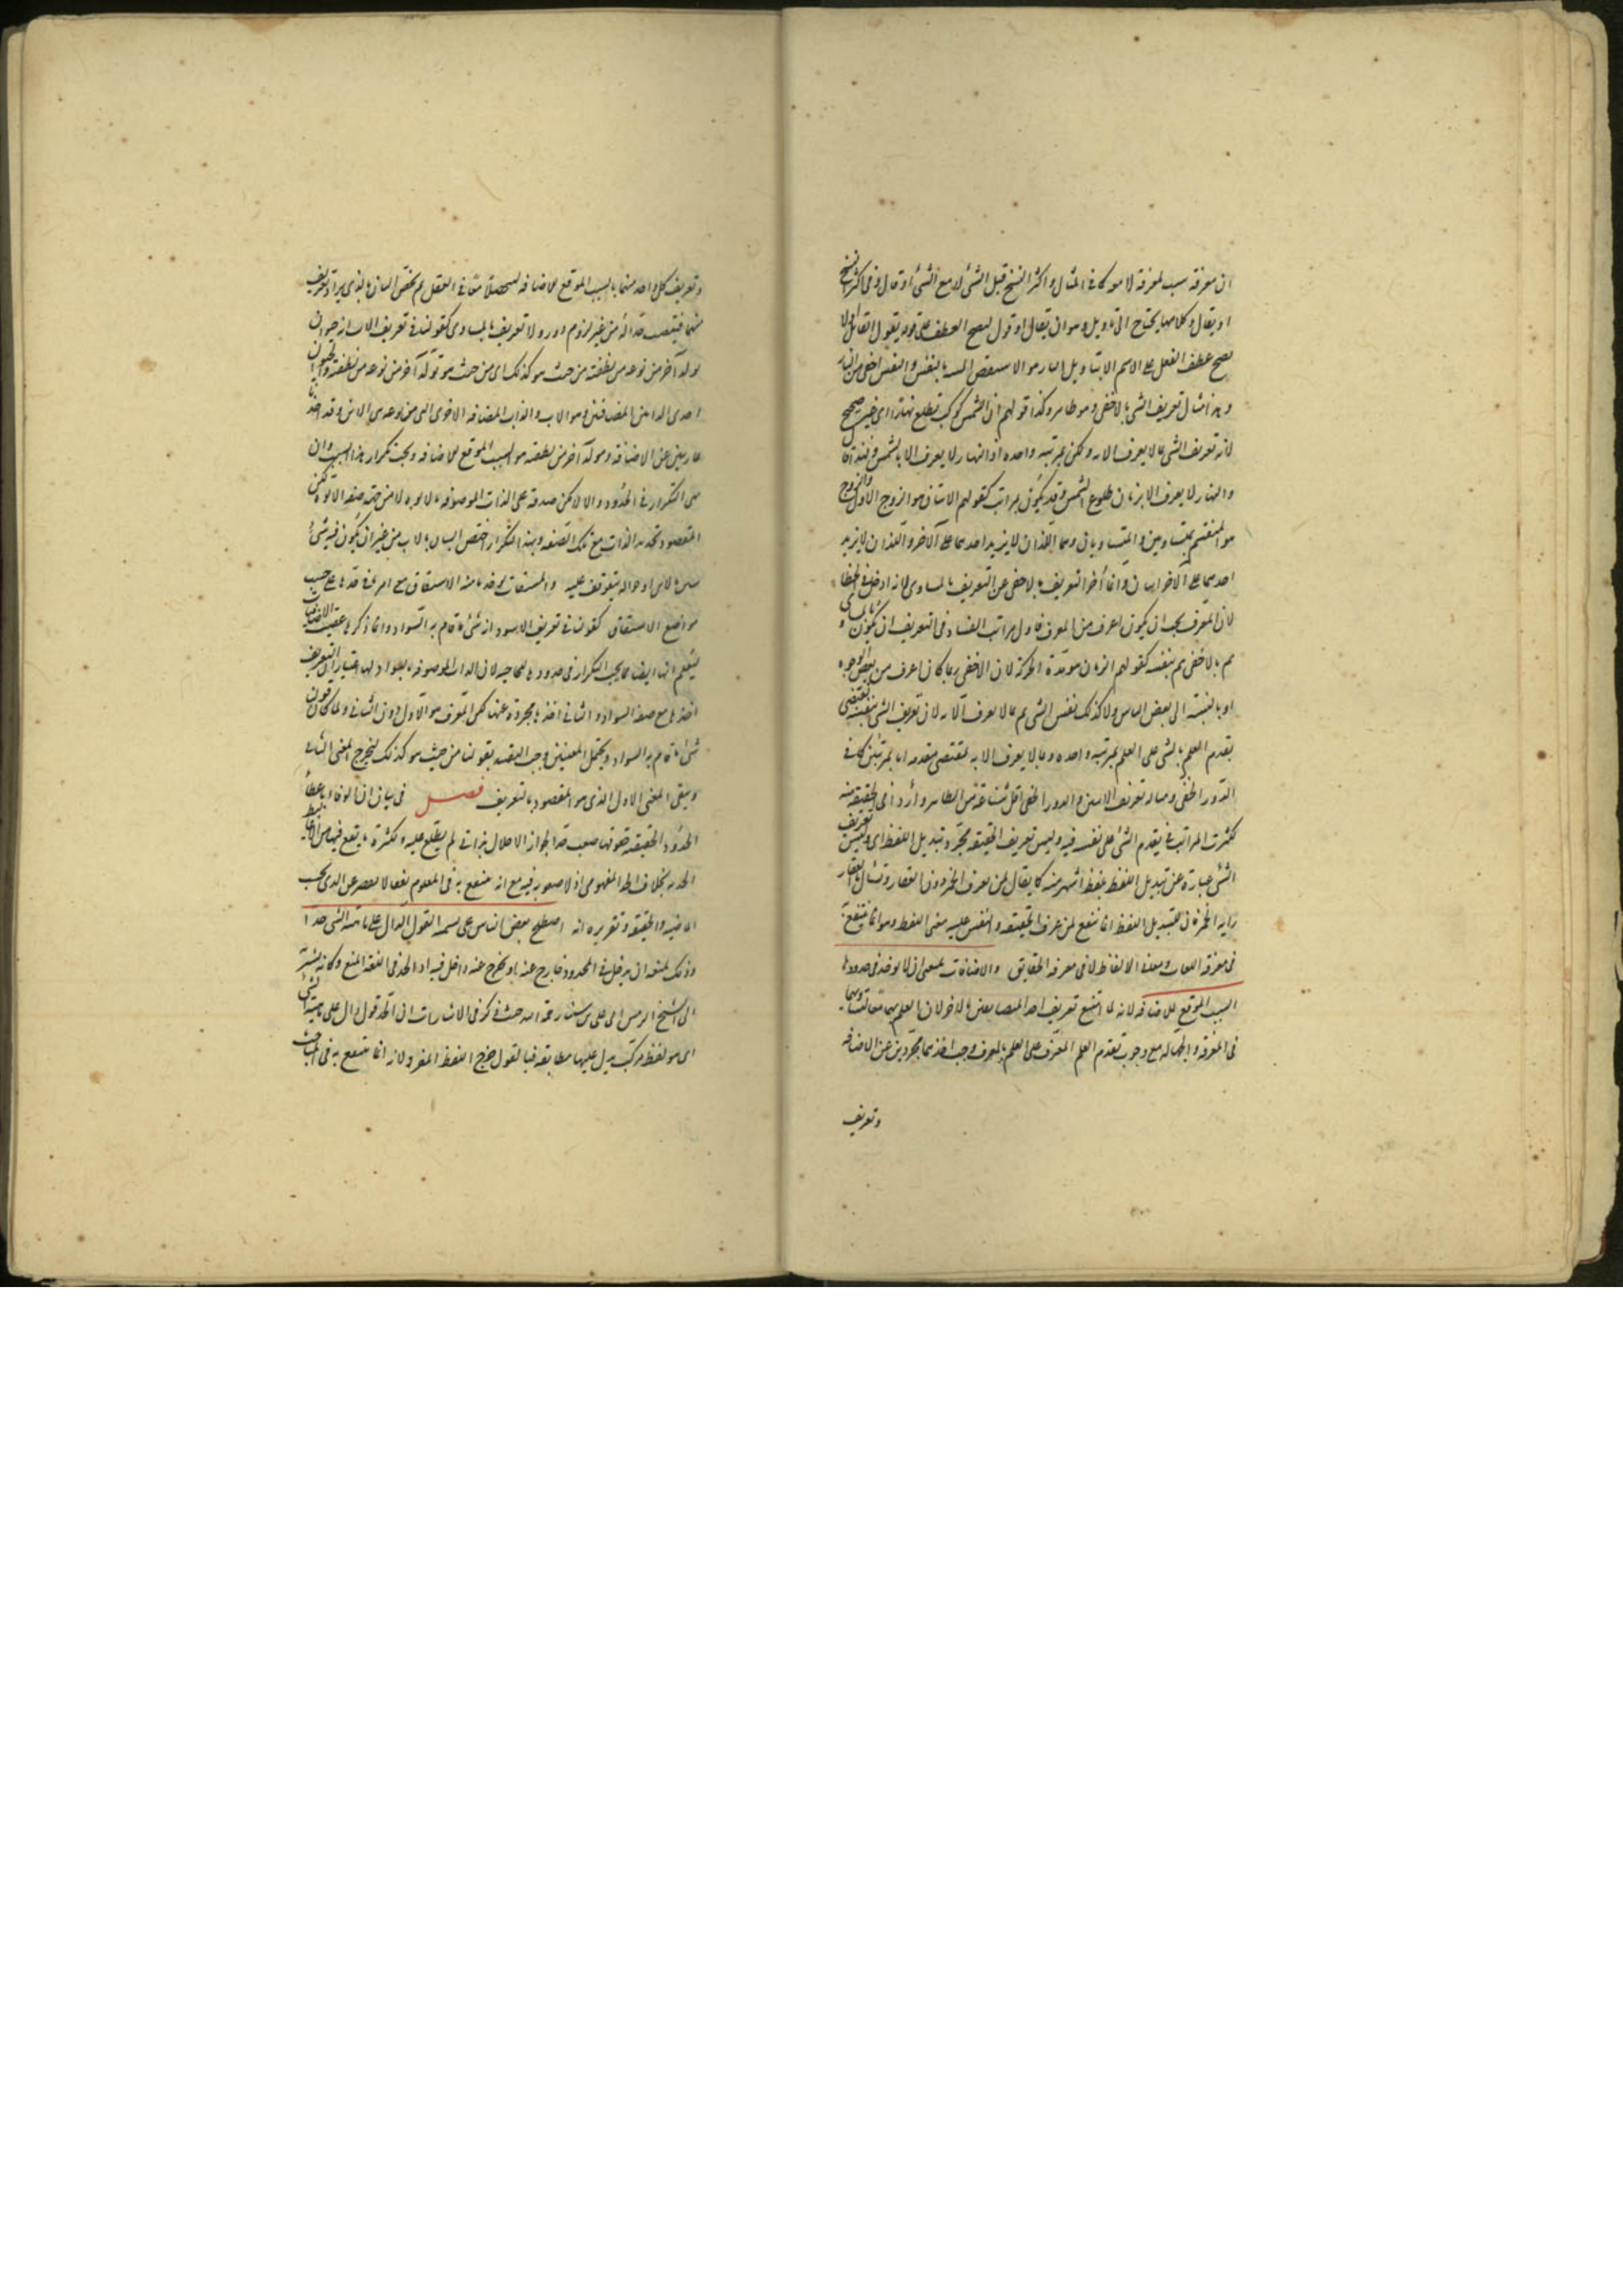 ان معرفة سبب لمعرفة لا موكما في المثال واكثر النسخ قبل الشئ لا مع الشئ أو قال وفي اكثر النسخ
او يقال وكلاهما يحتاج الى تأويل وهو ان يقال او قول ليصح العطف على قوله يقول القائل ولا
يصح عطف الفعل على الاسم الا بتأويل النار هو الاسطقص الشبيه بالنفس والنفس اخفى من النار
وهذا مثال تعريف الشئ بالاخفى وهو ظاهر وكذا قولهم ان الشمس كوكب تطلع نهارا اى غير صحيح
لانه تعريف الشئ بما لا يعرف الا به ولكن بمرتبة واحدة اذ النهار لا يعرف الا بالشمس
والنهار لا يعرف الا بزمان طلوع الشمس وقد يكون بمراتب كقولهم الاثنان هو الزوج الاول والزوج
هو المنقسم بمتساويين والمتساويان هما اللذان لا يزيد احدهما على الآخر واللذان لا يزيد
احدهما على الآخر اثنان وانما أخر التعريف بالاخفى عن التعريف بالمساوى لانه ادخل في الخطا
لان المعرف يجب ان يكون اعرف من المعرف فاول مراتب الفساد في التعريف ان يكون بالمساوى
ثم بالاخفى ثم بنفسه كقولهم الزمان مدة الحركة لان الاخفى ربما كان اعرف من بعض الوجوه
او بالنسبة الى بعض الناس ولا كذلك نفس الشئ ثم بما لا يعرف الا به لان تعريف الشئ بنفسه يقتضى
تقدم العلم بالشئ على العلم بمرتبة واحدة وبما لا يعرف الا به يقتضى تقدمه اما بمرتبتين كما في
الدور الخفى ومباد تعريف الاثنين والدور الخفى اقل شناعة من الظاهر وأردأ في الحقيقة منه
كثرت المراتب في تقدم الشئ على نفسه فيه وليس تعريف الحقيقة مجرد تبديل اللفظ اى وليس تعريف
الشئ عبارة عن تبديل اللفظ بلفظ أشهر منه كما يقال لمن يعرف الخمر دون العقار وتسأل ما العقار
انه الخمر فان تبديل اللفظ انما ينفع لمن عرف الحقيقة والتبس عليه معنى اللفظ وهو انما ينتفع به
في معرفة اللغات ومعنى الالفاظ لا في معرفة الحقايق والاضافات ينبغى ان يؤخذ في حدودها
السبب الموقع للاضافة لانه لما امتنع تعريف احد المتضايفين بالاخر لان العلم بهما معا
في المعرفة والجهالة مع وجوب تقدم العلم المعرف على العلم بالمعرف وجب اخذهما مجردين عن الاضافة
وتعريف
وتعريف كل واحد منهما بالسبب الموقع للاضافة ليتحصلا معا في العقل ثم يختص البيان بالذى يراد تعريف
منهما من غير لزوم دور ولا تعريف بالمساوى كقولنا في تعريف الاب انه حيوان
يولد آخر من نوعه من نطفته من حيث هو كذلك اى من حيث هو تولد آخر من نوعه من نطفته والحيوان
احدى الذاتين المضافتين وهو الاب والذات المضافة الاخرى التى من نوعه هى الابن وقد اخذا
عاريين عن الاضافة ومولد آخر من نطفته هو السبب الموقع للاضافة ويجب تكرار هذا السبب وان
من التكرار في الحدود والا لامكن صدقه على الذات الموصوفة بالابوة لا من جهة صفة الابوة لكن
المقصود تحديد الذات مع تلك الصفة وبهذا التكرار اختص البيان بالاب من غير ان يكون فيه شئ
بين بالابن او حوالة يتوقف عليه والمشتقات يؤخذ ما منه الاشتقاق مع امر في حدها على حسب
مواضع الاشتقاق كقولنا في تعريف الاسود انه شئ ما قام به السواد وانما ذكرها عقيب الاضافات
ليتعلم انها ايضا مما يجب التكرار في حدودها لان الذات الموصوفة بالسواد لها اعتباران التعريف
اخذها مع صفة السواد والثاني اخذها مجردة عنها لكن المعرف هو الاول دون الثاني ولما كان قولنا
شئ ما قام به السواد ويحتمل المعنيين وجب التقييد بقولنا من حيث هو كذلك ليخرج المعنى الثاني
ويبقى المعنى الاول الذى هو المقصود بالتعريف فصل في بيان ان الوفاء باعطاء
الحدود الحقيقية حقوقها صعب جدا لجواز الاخلال بذاتى لم يطلع عليه ولكثرة ما يقع فيها من الاغاليط
الحدية بخلاف الحد المفهومى اذ لا صعوبة فيه مع انه منتفع به في العلوم نفعا لا يقصر عن الذى بحسب
الماهية والحقيقة وتقريره انه اصطلح بعض الناس على تسمية القول الدال على ماهية الشئ حدا
وذلك لمنعه ان يدخل في المحدود خارج عنه او يخرج عنه داخل فيه اذ الحد في اللغة المنع وكانه يشير
الى الشيخ الرئيس ابى على بن سينا رحمه الله حيث ذكر في الاشارات ان الحد قول دال على ماهية الشئ
اى هو لفظ مركب يدل عليها مطابقة فبالقول خرج اللفظ المفرد لانه انما ينتفع به في المباحث